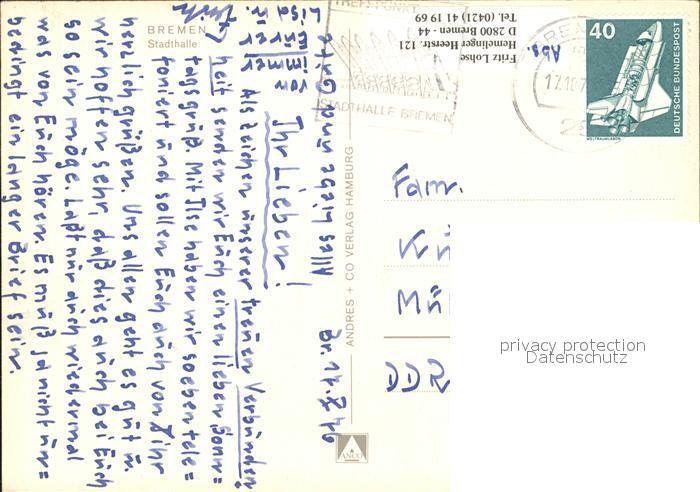 BREMEN
Stadthalle
Br. 17.
Ihr Lieben!
Als Zeichen unserer treuen Verbunden=
heit senden wir Euch einen lieben Sonn=
taggruß. Mit Ilse haben wir soeben tele=
foniert und sollen Euch auch von ihr
herzlich grüßen. Uns allen geht es gut u.
wir hoffen sehr, daß dies auch bei Euch
so sein möge. Laßt nur auch wiedermal
was von Euch hören. Es muß ja nicht un=
bedingt ein langer Brief sein.
Alles Liebe und Gute
von
immer
Eure
Lisa u.
Fritz
ANDRES + CO VERLAG HAMBURG
ANCO
TREFFPUNKT
STADTHALLE BREMEN
Abs.
Fritz Lohse
Hemelinger Heerstr. 121
D 2800 Bremen -44-
Tel. (0421) 41 19 69
17.10.7
40
DEUTSCHE BUNDESPOST
WELTRAUMLABOR
Fam.
DDR
privacy protection
Datenschutz